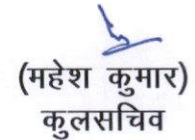 (महेश कुमार)
कुलसचिव